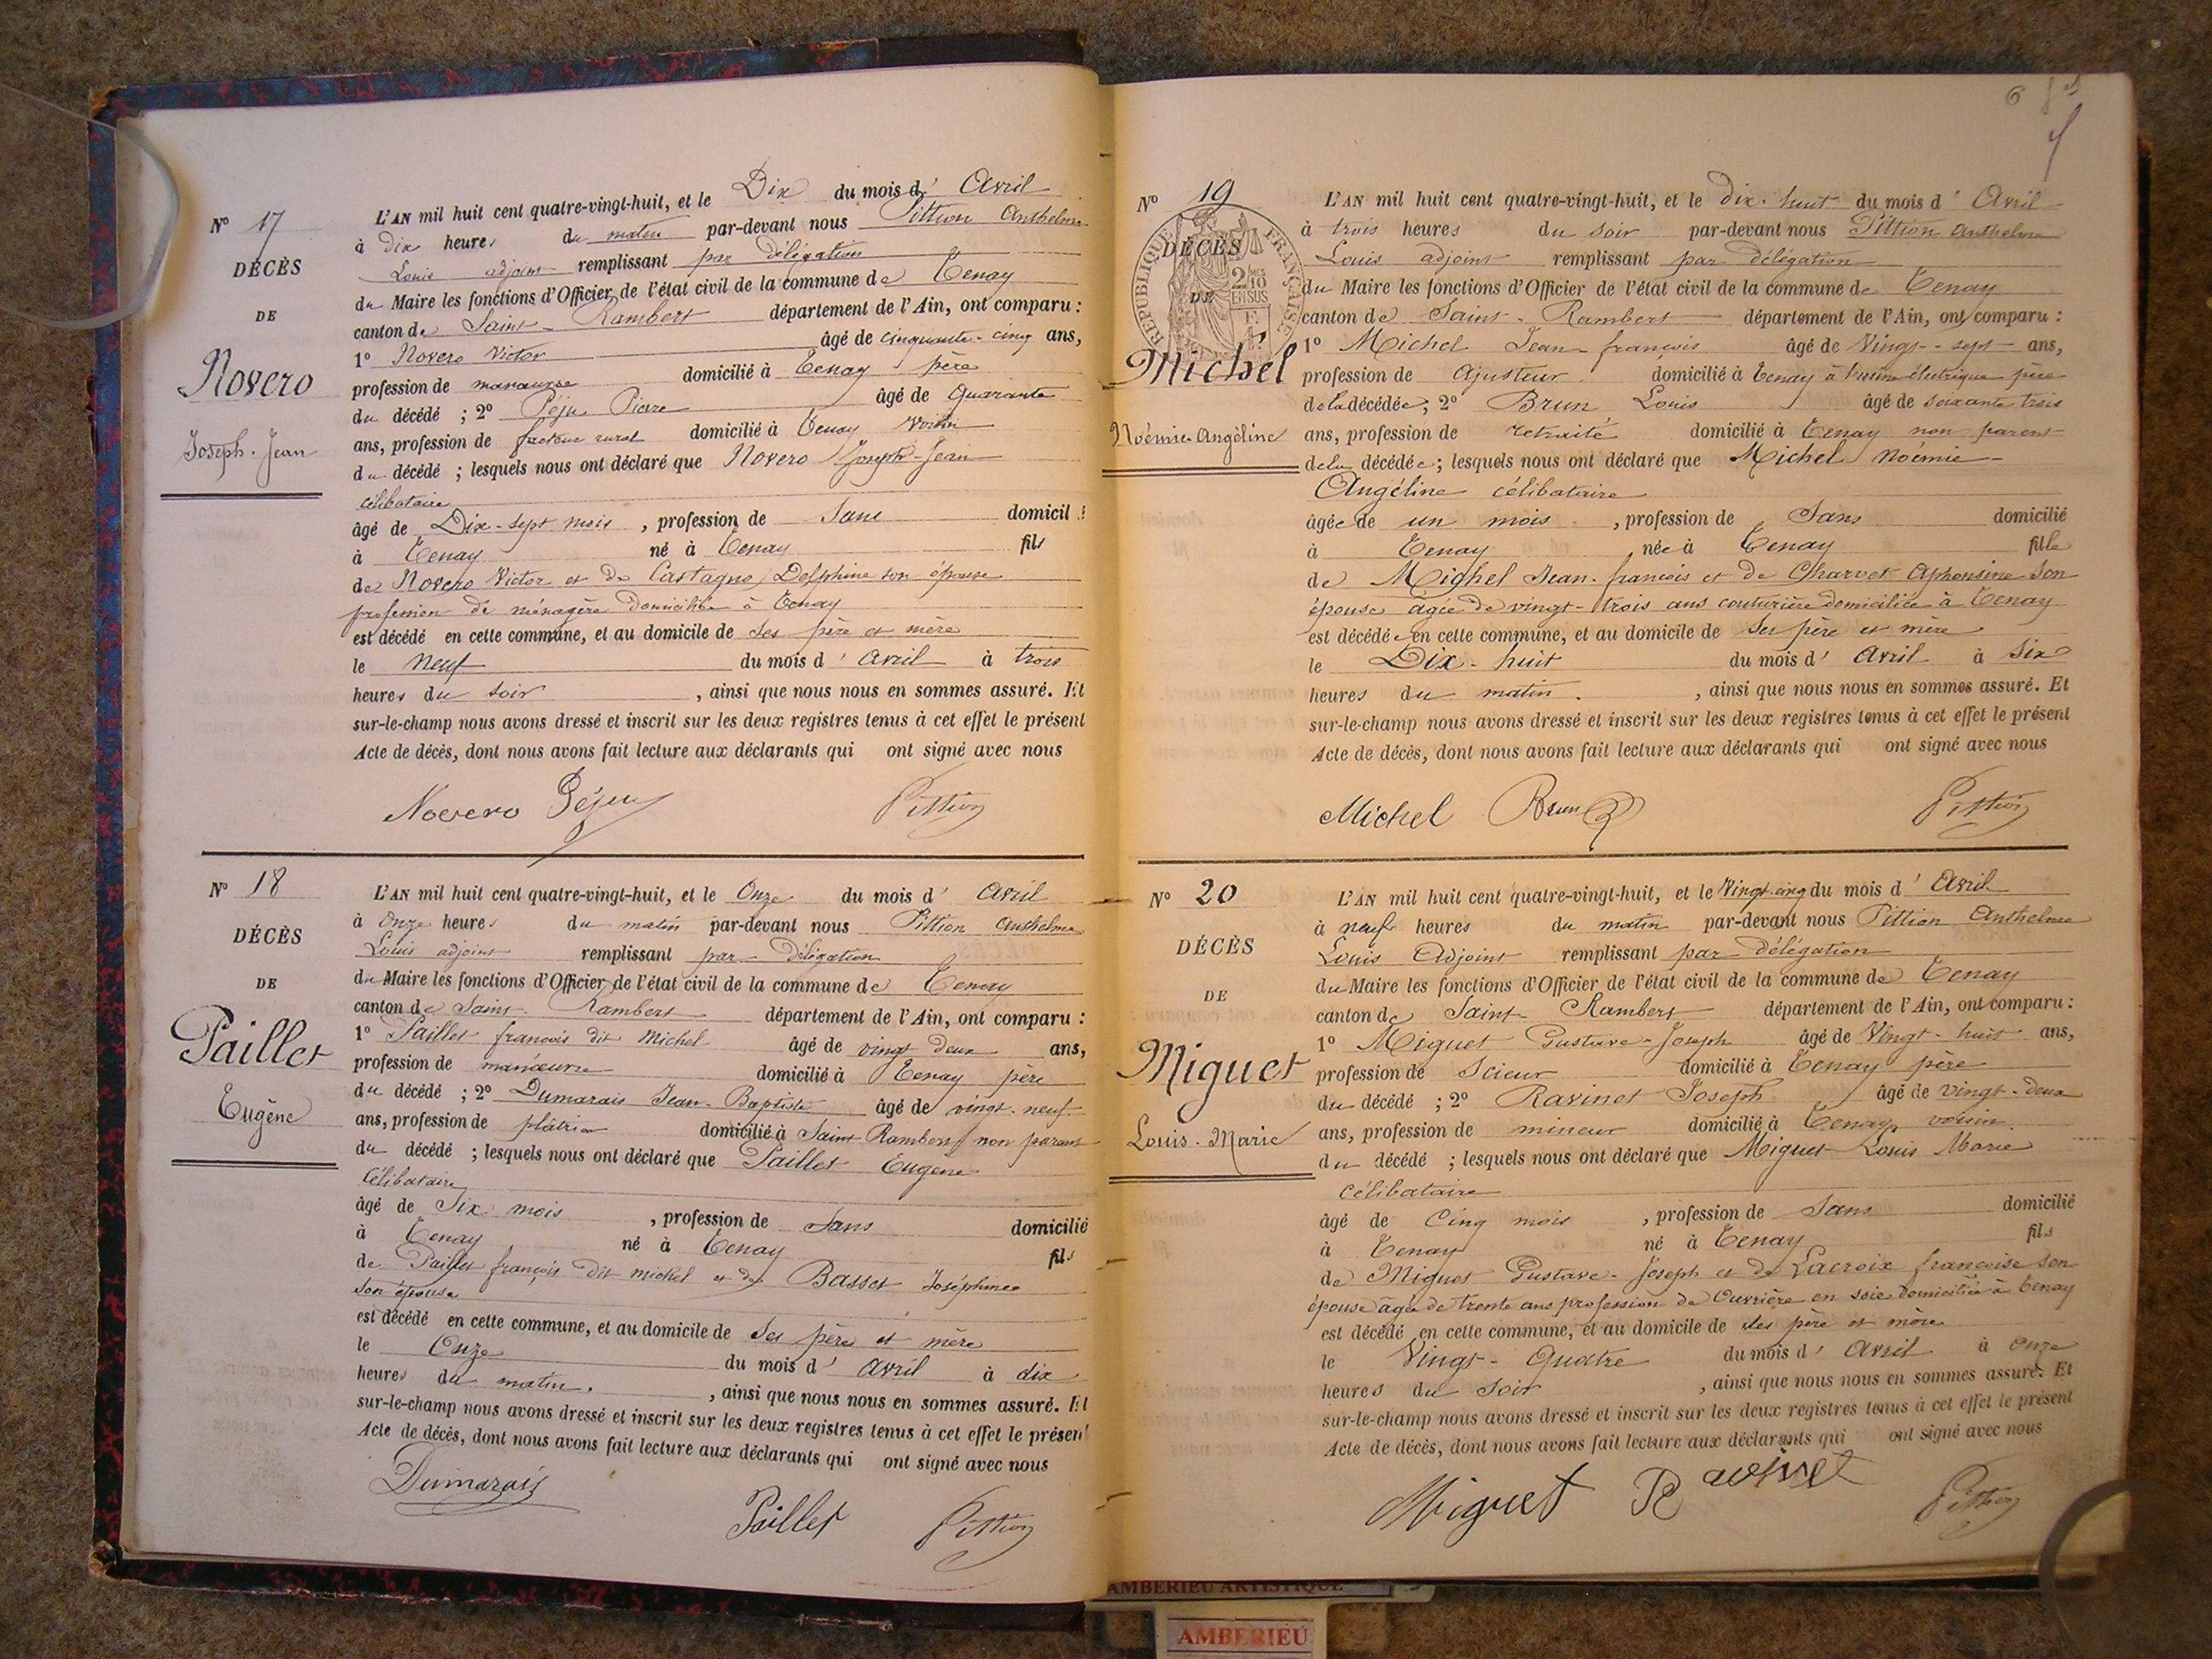 Nº 17
DÉCÈS
DE
Novero
Joseph-Jean
L'AN mil huit cent quatre-vingt-huit, et le Dix du mois d' Avril
à dix heures du matin par-devant nous Pittion Anthelme
Louis adjoint remplissant par délégation
du Maire les fonctions d'Officier de l'état civil de la commune de Tenay
canton de Saint-Rambert département de l'Ain, ont comparu :
1º Novero Victor âgé de cinquante-cinq ans,
profession de manœuvre domicilié à Tenay père
du décédé ; 2º Péju Pierre âgé de quarante
ans, profession de facteur rural domicilié à Tenay voisin
du décédé ; lesquels nous ont déclaré que Novero Joseph-Jean
célibataire
âgé de Dix-sept mois , profession de Sans domicilié
à Tenay né à Tenay fils
de Novero Victor et de Castagno Delphine son épouse
profession de ménagère domiciliée à Tenay
est décédé en cette commune, et au domicile de ses père et mère
le neuf du mois d' avril à trois
heures du soir , ainsi que nous nous en sommes assuré. Et
sur-le-champ nous avons dressé et inscrit sur les deux registres tenus à cet effet le présent
Acte de décès, dont nous avons fait lecture aux déclarants qui ont signé avec nous
Novero Péju Pittion
Nº 18
DÉCÈS
DE
Paillet
Eugène
L'AN mil huit cent quatre-vingt-huit, et le Onze du mois d' avril
à onze heures du matin par-devant nous Pittion Anthelme
Louis adjoint remplissant par délégation
du Maire les fonctions d'Officier de l'état civil de la commune de Tenay
canton de Saint Rambert département de l'Ain, ont comparu :
1º Paillet françois dit Michel âgé de vingt deux ans,
profession de manœuvre domicilié à Tenay père
du décédé ; 2º Dumarais Jean-Baptiste âgé de vingt-neuf
ans, profession de plâtrier domicilié à Saint Rambert non parent
du décédé ; lesquels nous ont déclaré que Paillet Eugène
Célibataire
âgé de Six mois , profession de Sans domicilié
à Tenay né à Tenay fils
de Paillet françois dit michel et de Basset Joséphine
son épouse
est décédé en cette commune, et au domicile de ses père et mère
le Onze du mois d' avril à dix
heures du matin. , ainsi que nous nous en sommes assuré. Et
sur-le-champ nous avons dressé et inscrit sur les deux registres tenus à cet effet le présent
Acte de décès, dont nous avons fait lecture aux déclarants qui ont signé avec nous
Dumarais
Paillet Pittion
6
Nº 19
DÉCÈS
DE
RÉPUBLIQUE FRANÇAISE
2/10 EN SUS
Michel
Noémie-Angéline
L'AN mil huit cent quatre-vingt-huit, et le dix-huit du mois d' Avril
à trois heures du soir par-devant nous Pittion Anthelme
Louis adjoint remplissant par délégation
du Maire les fonctions d'Officier de l'état civil de la commune de Tenay
canton de Saint-Rambert département de l'Ain, ont comparu :
1º Michel Jean-françois âgé de Vingt-sept ans,
profession de Ajusteur domicilié à Tenay à l'usine électrique père
de la décédée ; 2º Brun Louis âgé de soixante trois
ans, profession de retraité domicilié à Tenay non parent
de la décédée ; lesquels nous ont déclaré que Michel Noémie-
Angéline célibataire
âgée de un mois , profession de Sans domicilié
à Tenay née à Tenay fille
de Michel Jean-françois et de Charvet Alphonsine son
épouse âgée de vingt-trois ans couturière domiciliée à Tenay
est décédée en cette commune, et au domicile de ses père et mère
le Dix-huit du mois d' Avril à Six
heures du matin. , ainsi que nous nous en sommes assuré. Et
sur-le-champ nous avons dressé et inscrit sur les deux registres tenus à cet effet le présent
Acte de décès, dont nous avons fait lecture aux déclarants qui ont signé avec nous
Michel Brun Pittion
Nº 20
DÉCÈS
DE
Miguet
Louis-Marie
L'AN mil huit cent quatre-vingt-huit, et le Vingt-cinq du mois d' Avril
à neuf heures du matin par-devant nous Pittion Anthelme
Louis Adjoint remplissant par délégation
du Maire les fonctions d'Officier de l'état civil de la commune de Tenay
canton de Saint-Rambert département de l'Ain, ont comparu :
1º Miguet Gustave-Joseph âgé de Vingt-huit ans,
profession de Scieur domicilié à Tenay père
du décédé ; 2º Ravinet Joseph âgé de vingt-deux
ans, profession de mineur domicilié à Tenay voisin.
du décédé ; lesquels nous ont déclaré que Miguet Louis Marie
Célibataire
âgé de Cinq mois , profession de Sans domicilié
à Tenay né à Tenay fils
de Miguet Gustave-Joseph et de Lacroix françoise son
épouse âgée de trente ans profession de Ouvrière en soie domiciliée à Tenay
est décédé en cette commune, et au domicile de ses père et mère
le Vingt-Quatre du mois d' Avril à onze
heures du Soir , ainsi que nous nous en sommes assuré. Et
sur-le-champ nous avons dressé et inscrit sur les deux registres tenus à cet effet le présent
Acte de décès, dont nous avons fait lecture aux déclarants qui ont signé avec nous
Miguet Ravinet Pittion
AMBERIEU ARTISTIQUE
AMBERIEU